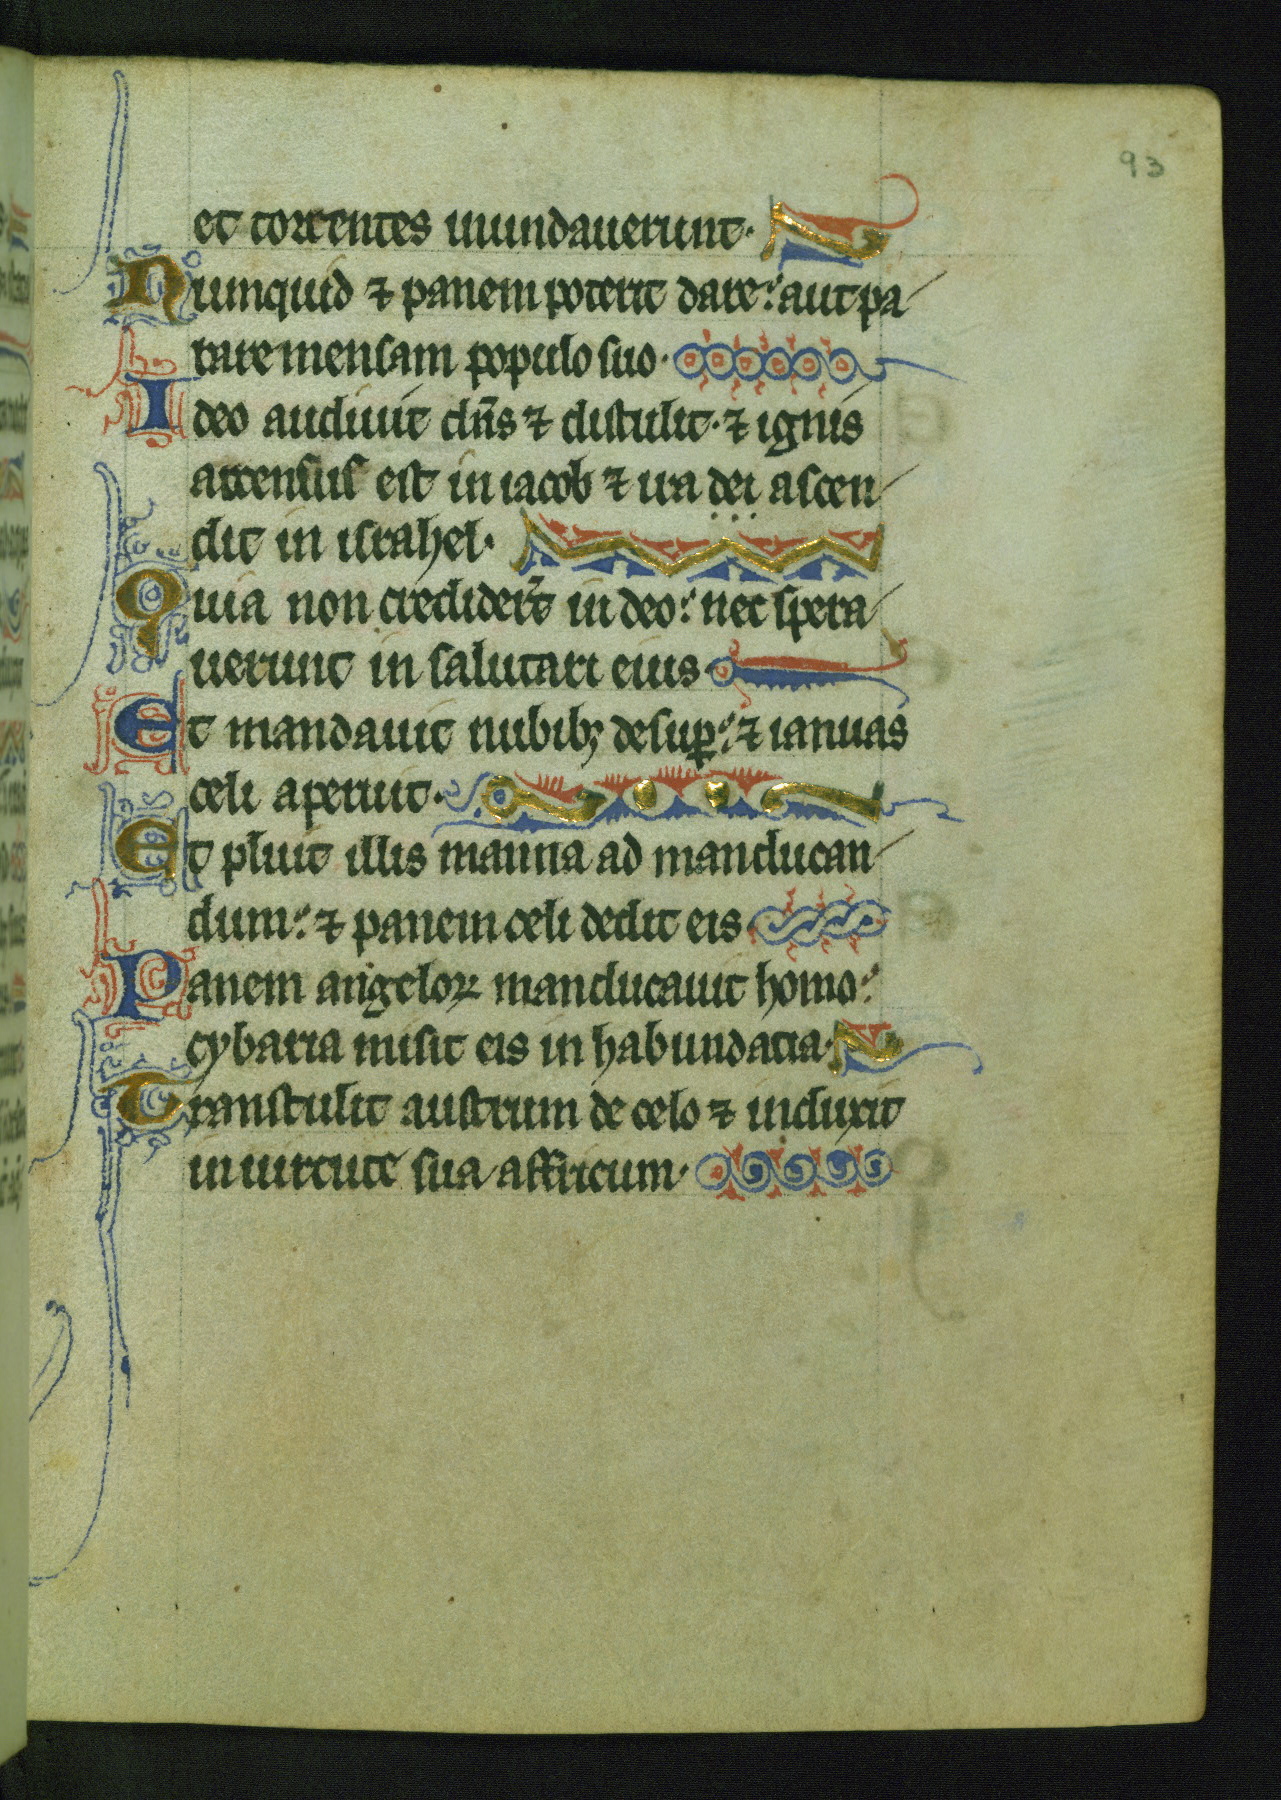 93
et torrentes inundauerunt·
Nunquid ⁊ panem poterit dare: aut pa
rare mensam populo suo·
Ideo audiuit dn̄s ⁊ distulit· ⁊ ignis
accensus est in iacob ⁊ ira dei ascen
dit in israhel·
Quia non credidert̄ in deo: nec spera
uerunt in salutari eius·
Et mandauit nubibꝫ desuꝑ: ⁊ ianuas
celi aperuit·
Et pluit illis manna ad manducan
dum: ⁊ panem celi dedit eis·
Panem angeloꝝ manducauit homo:
cybaria misit eis in habundatia·
Transtulit austrum de celo ⁊ induxit
in uirtute sua affricum·